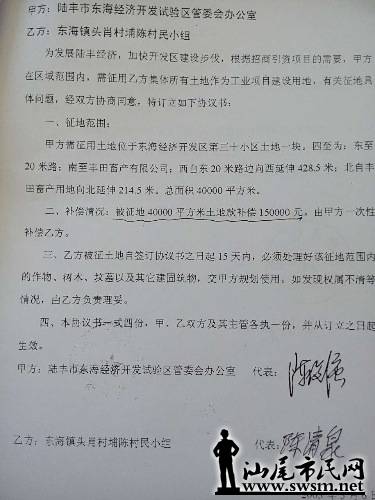 甲方：陆丰市东海经济开发试验区管委会办公室
乙方：东海镇头肖村埔陈村民小组
为发展陆丰经济，加快开发区建设步伐，根据招商引资项目的需要，甲方
在区域范围内，需征用乙方集体所有土地作为工业项目建设用地，有关征地具
体问题，经双方协商同意，特订立如下协议书：
一、征地范围：
甲方需征用土地位于东海经济开发区第三十小区土地一块。四至为：东至
20米路；南至丰田畜产有限公司；西自东20米路边向西延伸428.5米；北自丰
田畜产用地向北延伸214.5米。总面积40000平方米。
二、补偿情况：被征地40000平方米土地款补偿150000元，由甲方一次性
补偿乙方。
三、乙方被征土地自签订协议书之日起15天内，必须处理好该征地范围内
的作物、树木、坟墓以及其它建固筑物，交甲方规划使用。如发现权属不清等
情况，由乙方负责理妥。
四、本协议书一式四份，甲、乙双方及其主管各执一份，并从订立之日起
生效。
甲方：陆丰市东海经济开发试验区管委会办公室 代表：
乙方：东海镇头肖村埔陈村民小组 代表：陈清泉
汕尾市民网
www.swsm.net